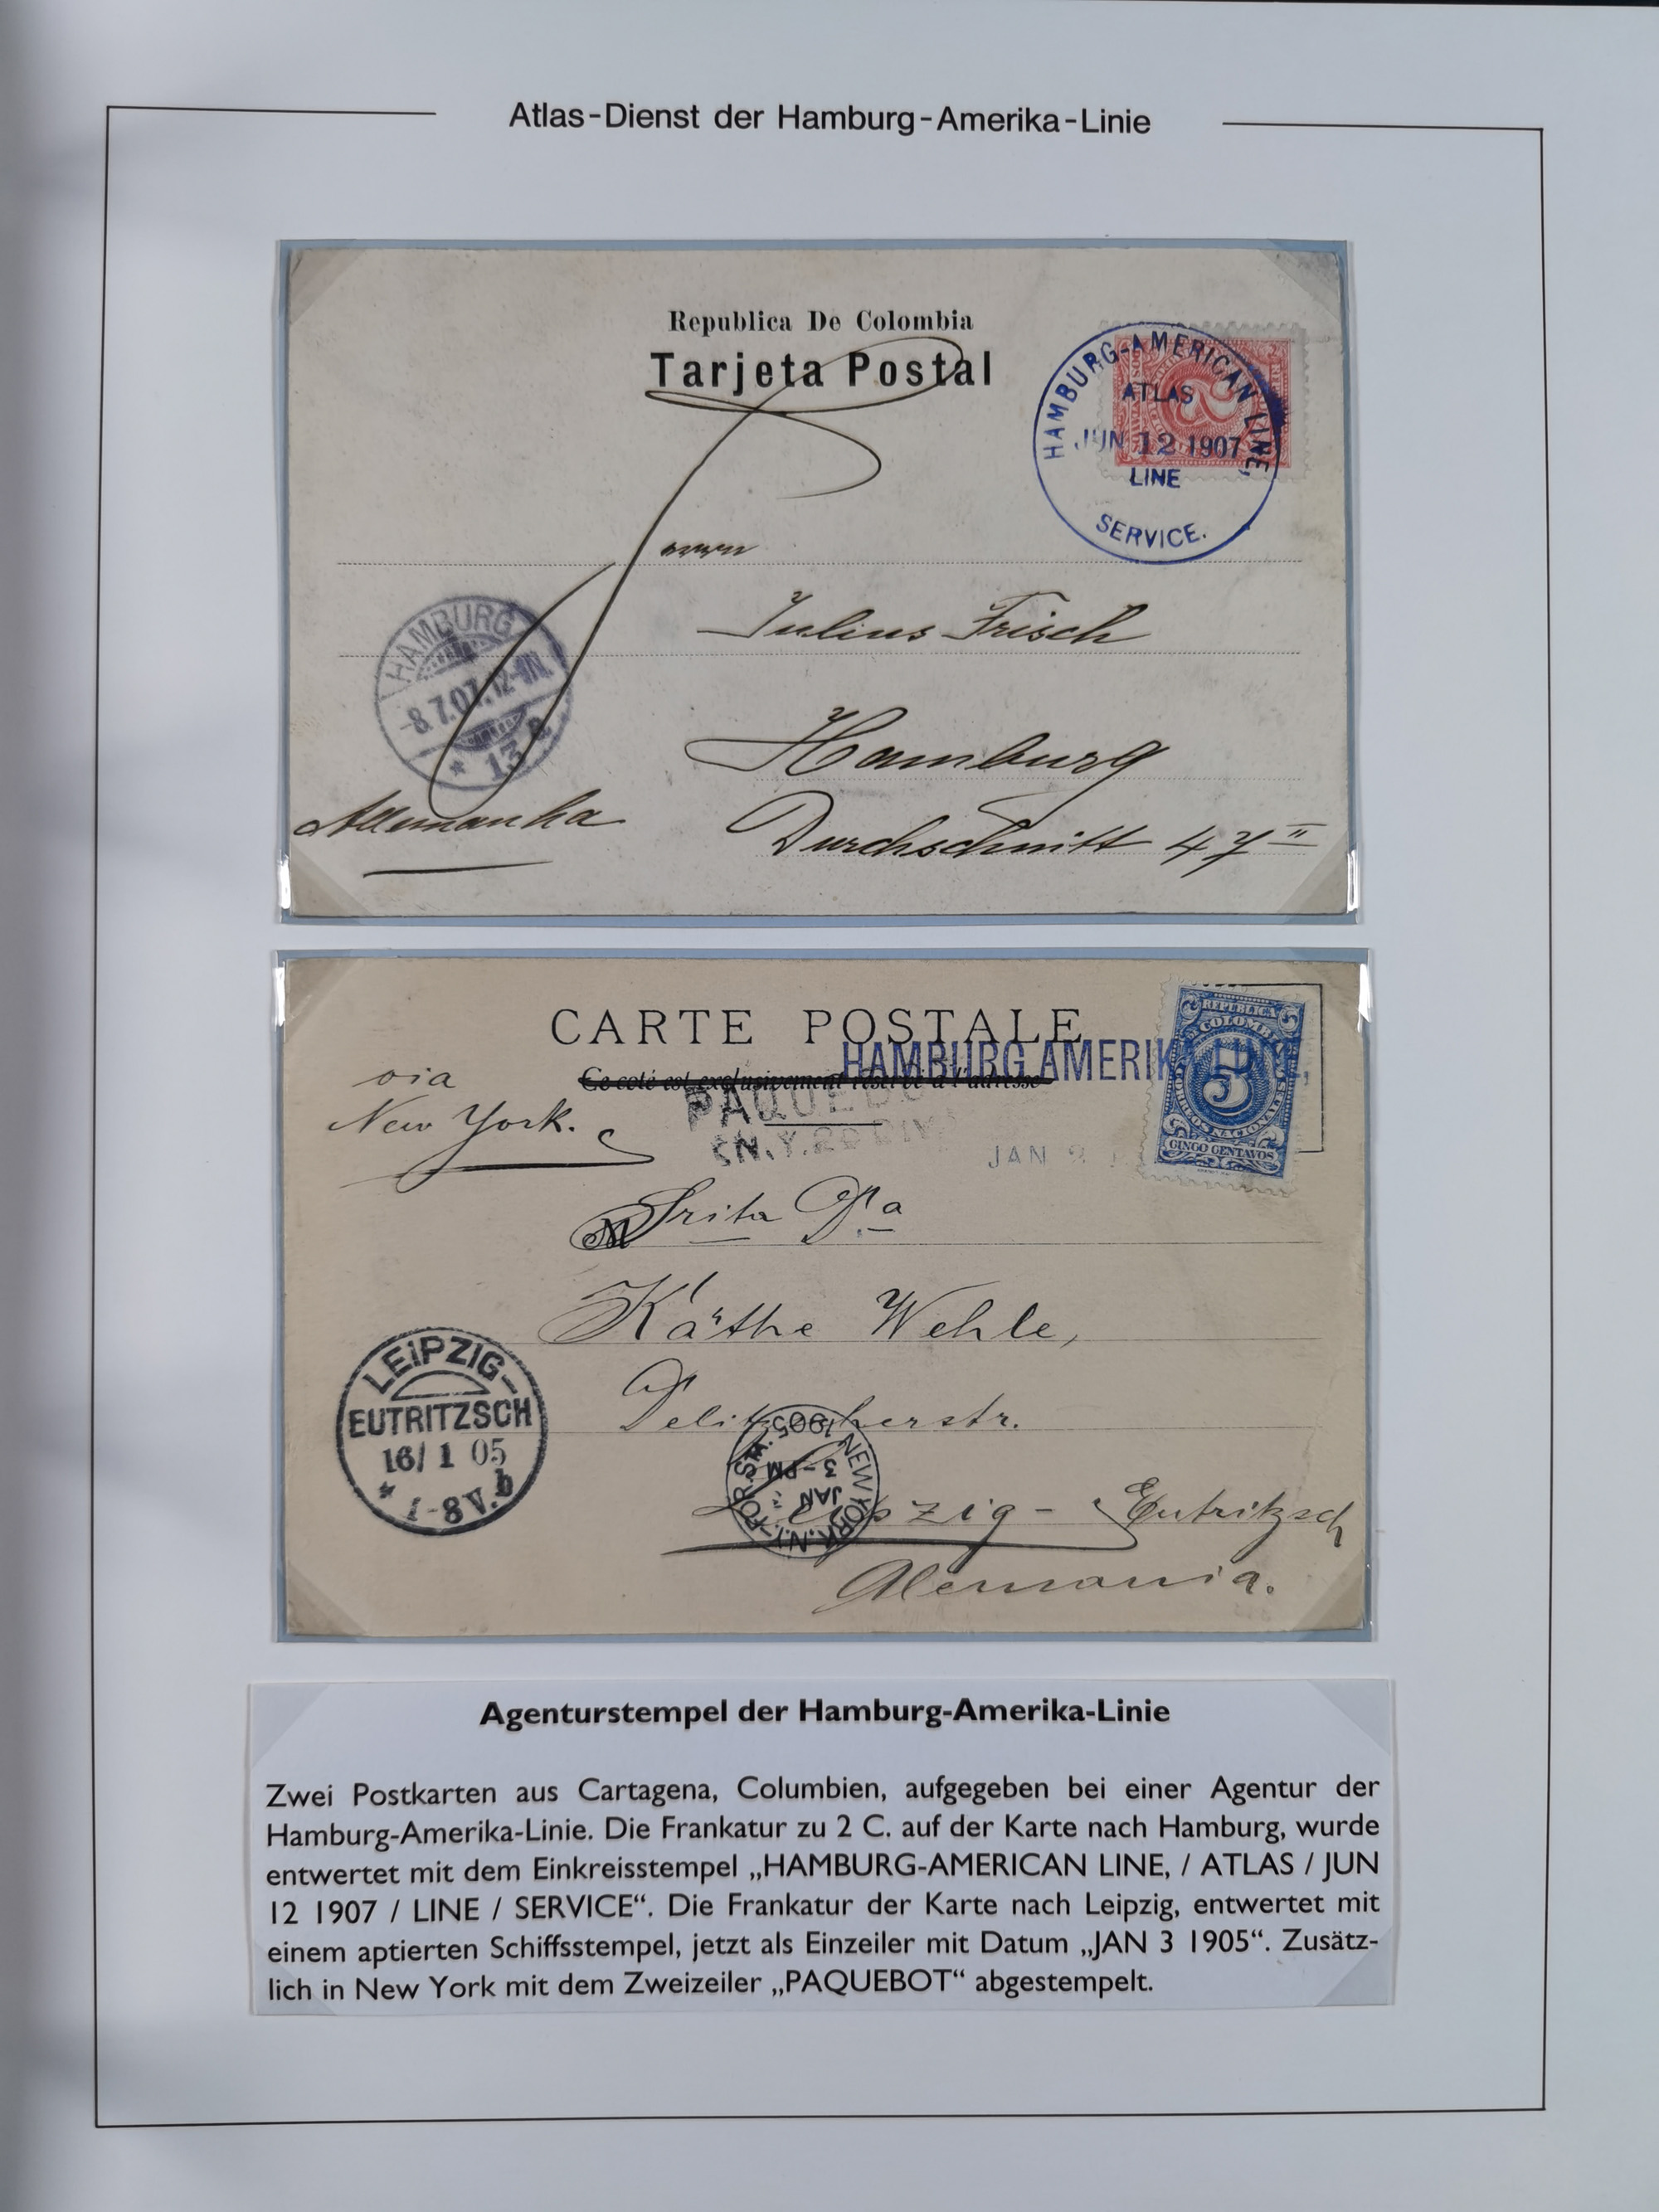 Atlas-Dienst der Hamburg-Amerika-Linie
Republica De Colombia
Tarjeta Postal
HAMBURG-AMERICAN LINE,
ATLAS
JUN 12 1907
LINE
SERVICE.
Julius Frisch
HAMBURG
-8.7.07. 12-1N.
* 13 a
Hamburg
Allemanha
Durchschnitt 47 II
CARTE POSTALE
HAMBURG AMERIKA LINE,
Ce coté est exclusivement réservé à l'adresse
via
New York.
PAQUEBOT
(N.Y. 2D DIV.
JAN
REPUBLICA
COLOMBIA
5
CORREOS NACIONALES
CINCO CENTAVOS
M
Srita Da
Käthe Wehle,
Delitzscherstr.
NEW YORK, N.Y. FOR. STA.
JAN
3-PM
1905
LEIPZIG-
EUTRITZSCH
16/1 05
* 7-8V. b
Leipzig-Eutritzsch
Alemania.
Agenturstempel der Hamburg-Amerika-Linie
Zwei Postkarten aus Cartagena, Columbien, aufgegeben bei einer Agentur der
Hamburg-Amerika-Linie. Die Frankatur zu 2 C. auf der Karte nach Hamburg, wurde
entwertet mit dem Einkreisstempel „HAMBURG-AMERICAN LINE, / ATLAS / JUN
12 1907 / LINE / SERVICE“. Die Frankatur der Karte nach Leipzig, entwertet mit
einem aptierten Schiffsstempel, jetzt als Einzeiler mit Datum „JAN 3 1905“. Zusätz-
lich in New York mit dem Zweizeiler „PAQUEBOT“ abgestempelt.